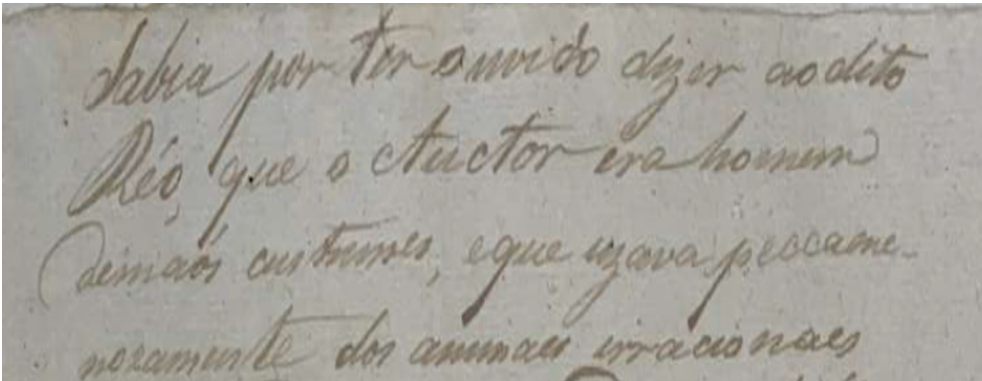 Sabia por ter ouvido dizer ao dito
Réo, que o Auctor era homem
demáos custumes, eque uzava peccame-
nozamente dos animaes irracionaes